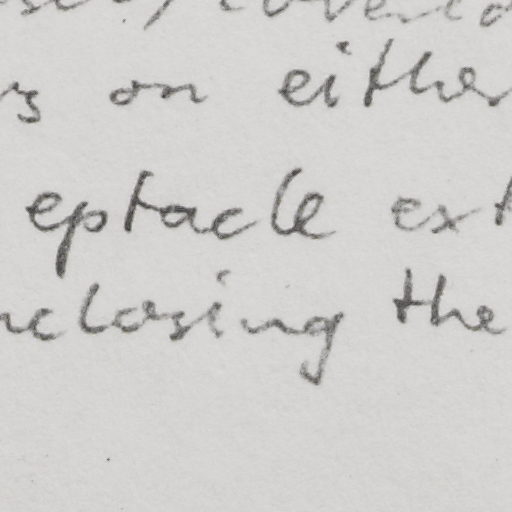 on either
eptacle ext
nclosing the